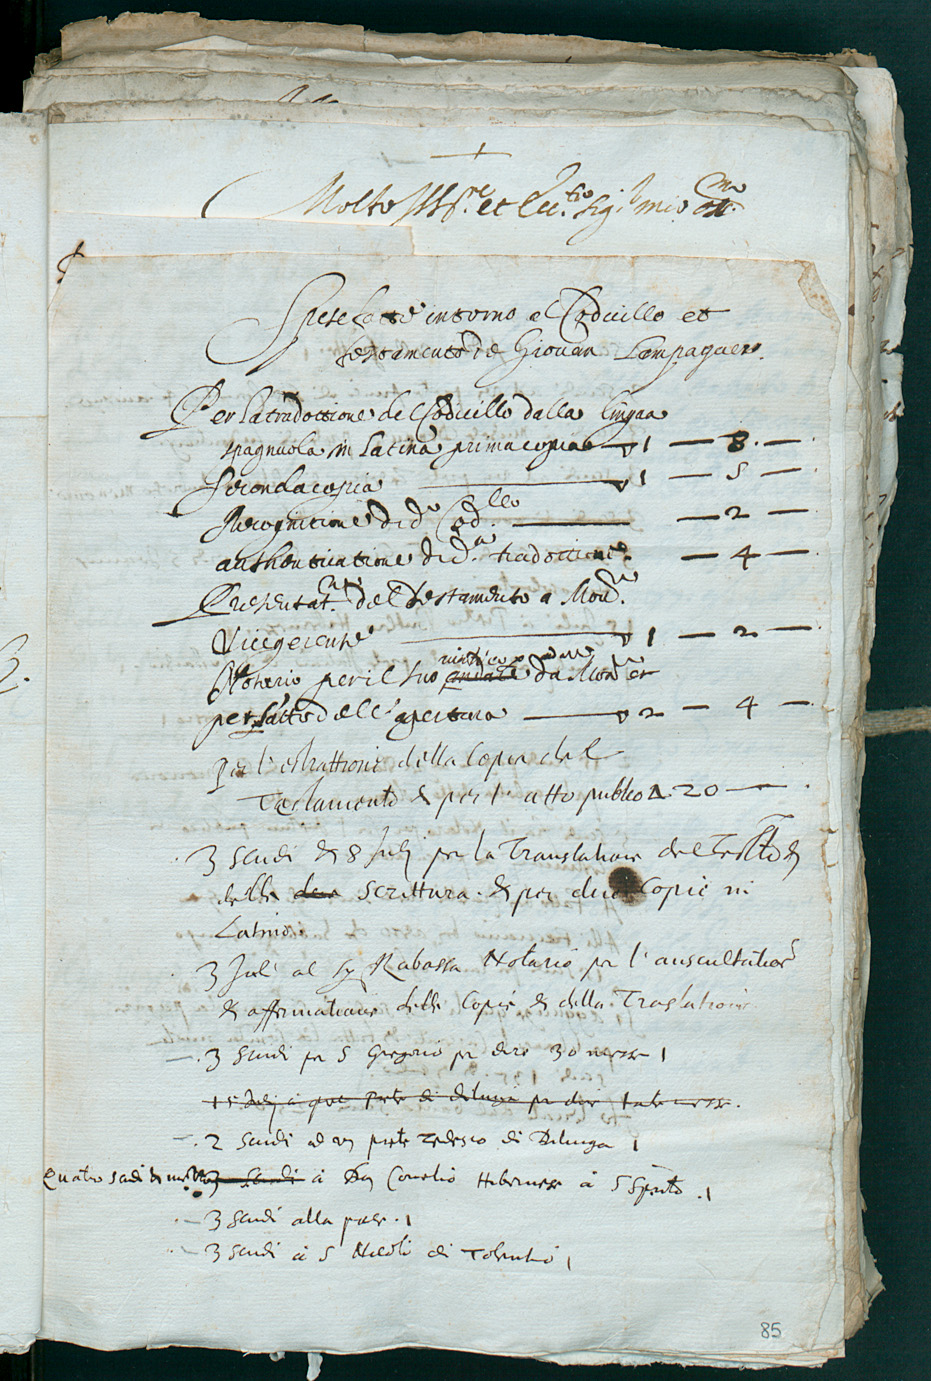 Molto Ill.re et Ecc.tio Sig.r mio
Spese fatte intorno al Codicillo et
testamento de Giovan Lampaguer.
Per la tradottione del Codicillo dalla lingua
spagnuola in latina prima copia 1 — 8 —
Seconda copia 1 — 5 —
Recognitione di d.o Cod.llo — 2 —
authenticatione di d.a tradottione. — 4 —
Presentat.ne del testamento a Mon.re
Vicegerente 1 — 2 —
Notario per il suo da Mon.re et
per l'atto dell'apertura 2 — 4 —
Per l'estrattione della Copia del
Testamento & per l'atto publico 20 —
3 scudi & 8 Julij per la Translatione del &
delle scrittura & per due Copie in
Latino.
3 Julij al Sig Rabassa Notario per l'auscultatione
& affirmatione delle Copie & della Traslatione
3 scudi per S Gregorio per dire 30 messe 1
15 Julij per dir messe.
2 scudi ad un prete Tedesco di 1
quatro scudi & mezo 3 scudi à Don Cornelio Hibernese à S Spirito. 1
3 scudi alla pace. 1
3 scudi à S Nicolò di Tolentino 1
85